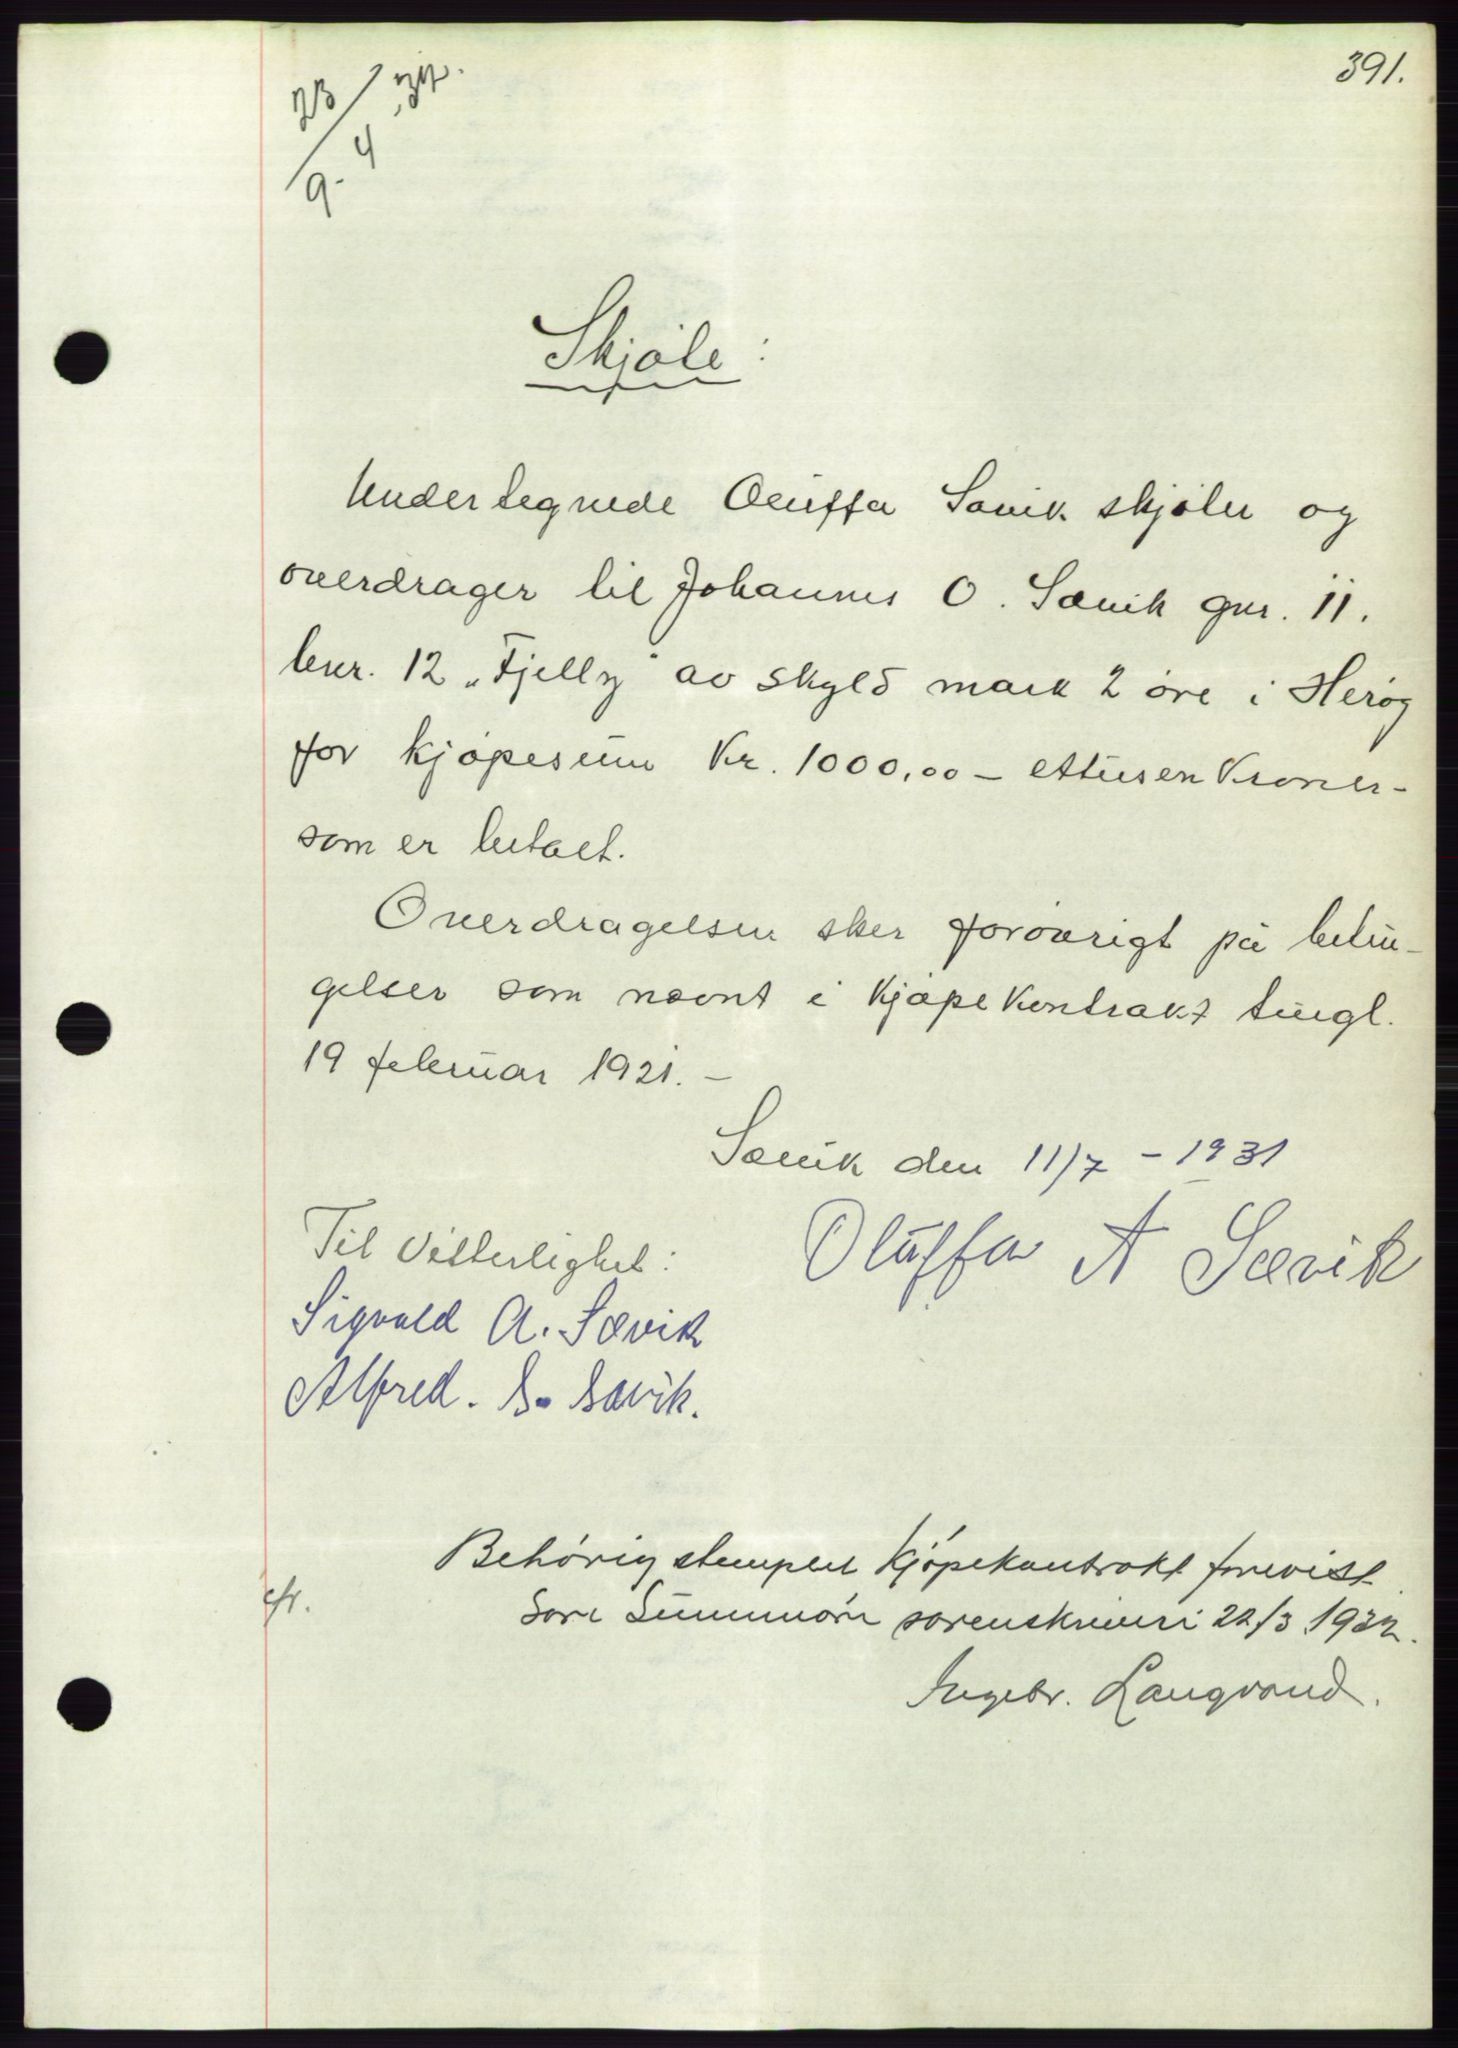 391.
23/4 .32.
9-
Skjøte:
Undertegnede Oluffa Sævik skjøter og
overdrager til Johannes O. Sævik gnr. 11.
bnr. 12 „Fjelly" av skyld mark 2 øre i Herøy
for kjøpesum Kr. 1000,00 – ettusen Kroner –
som er betalt.
Overdragelsen sker forøvrigt på betin-
gelser som nævnt i Kjøpekontrakt tingl.
19 februar 1921. –
Sævik den 11/7 – 1931
Oluffa A Sævik
Til Vitterlighet:
Sigvald A. Sævik
Alfred. S. Sævik.
Behørig stemplet Kjøpekontrakt forevist.
cfr.
Søre Sunnmøre sorenskriveri 22/3 1932.
Ingebr. Langvand.